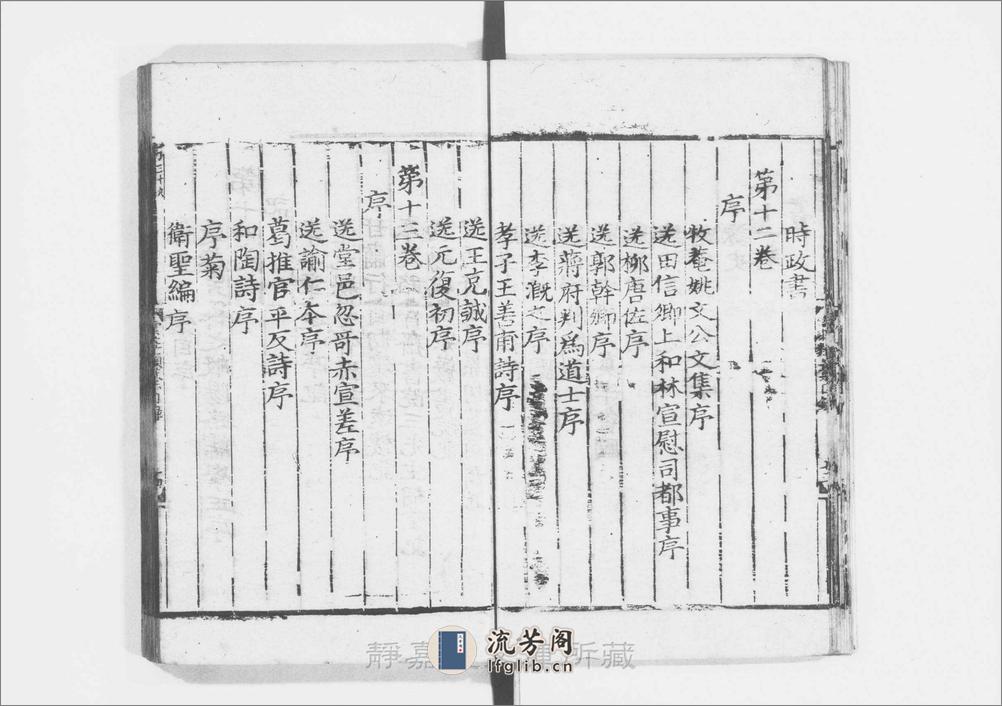 時政書
第十二卷
序
牧菴姚文公文集序
送田信卿上和林宣慰司都事序
送柳唐佐序
送郭幹卿序
送蔣府判爲道士序
送李溉之序
孝子王善甫詩序
送王克誠序
送元復初序
第十三卷
序
送堂邑忽哥赤宣差序
送諭仁本序
葛推官平反詩序
和陶詩序
序菊
衛聖編序
流芳阁
lfglib.cn
靜嘉
所藏